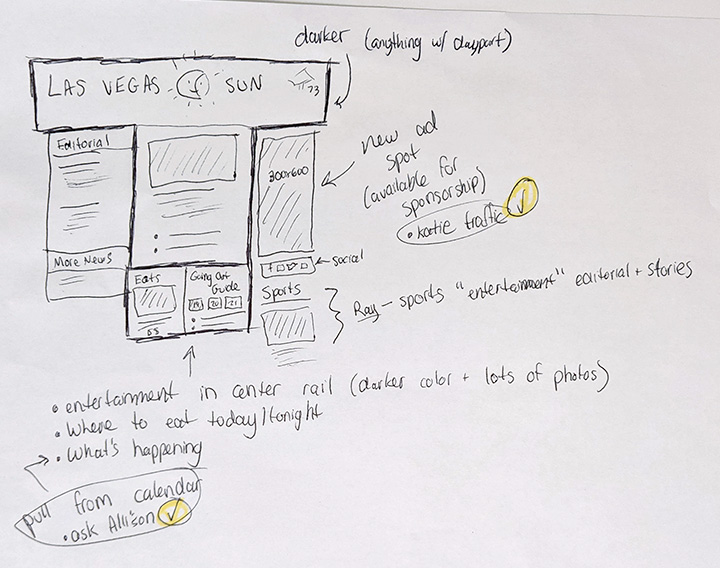 darker (anything w/ daypart)
LAS VEGAS SUN
73
Editorial
new ad
spot
(available for
sponsorship)
• katie traffic ✓
300x600
More News
social
Eats
Going Out
Guide
19 20 21
Sports
Ray – sports "entertainment" editorial + stories
• entertainment in center rail (darker color + lots of photos)
• Where to eat today/tonight
• What's happening
pull from calendar
• ask Allison ✓